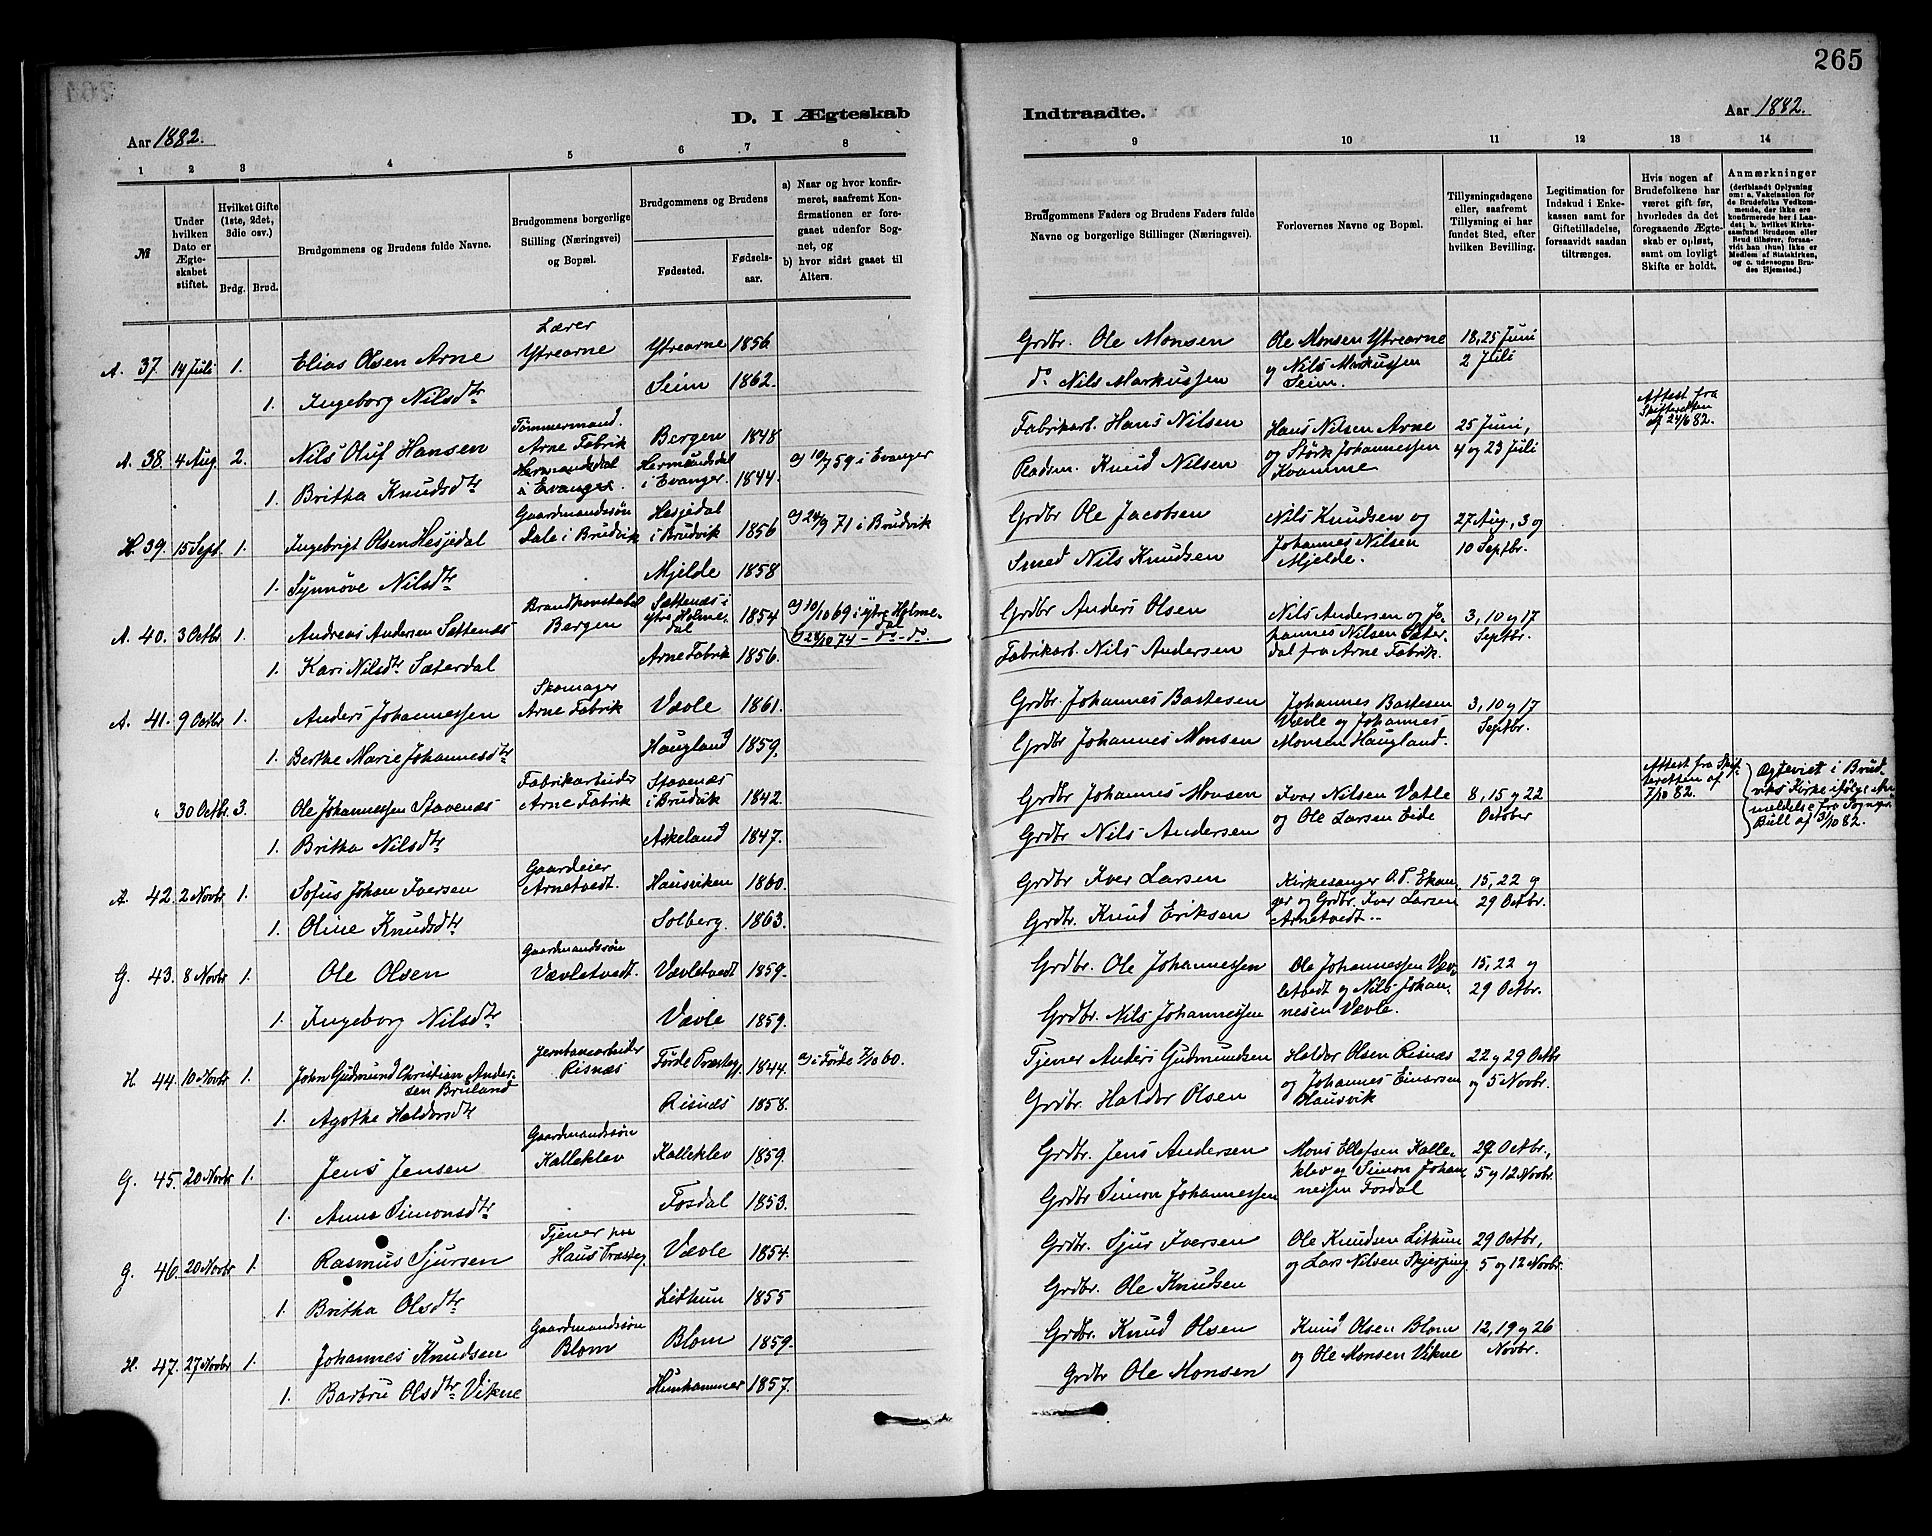 265
D. I Ægteskab
Indtraadte.
Aar 1882.
Aar 1882.
1 2 3 4 5 6 7 8
9 10 11 12 13 14
№
Under hvilken Dato er Ægteskabet stiftet.
Hvilket Gifte (1ste, 2det, 3die osv.)
Brdg. Brud.
Brudgommens og Brudens fulde Navne.
Brudgommens borgerlige Stilling (Næringsvei) og Bopæl.
Brudgommens og Brudens
Fødested.
Fødselsaar.
a) Naar og hvor konfirmeret, saafremt Konfirmationen er foregaaet udenfor Sognet, og
b) hvor sidst gaaet til Alters.
Brudgommens Faders og Brudens Faders fulde Navne og borgerlige Stillinger (Næringsvei).
Forlovernes Navne og Bopæl.
Tillysningsdagene eller, saafremt Tillysning ei har fundet Sted, efter hvilken Bevilling.
Legitimation for Indskud i Enkekassen samt for Giftetilladelse, forsaavidt saadan tiltrænges.
Hvis nogen af Brudefolkene har været gift før, hvorledes da det foregaaende Ægteskab er opløst, samt om lovligt Skifte er holdt.
Anmærkninger
(deriblandt Oplysning om: a. Vakcination for Brudefolks Vedkommende, der ikke ere konfirmerede her i Landet; b. hvilket Kirkesamfund Brudgom eller Brud tilhører, forsaavidt han (hun) ikke er Medlem af Statskirken, og c. udensogns Brudes Hjemsted.)
A. 37. 14 Juli 1. Elias Olsen Arne Lærer Ytrearne Ytrearne 1856 Grdbr. Ole Monsen Ole Monsen Ytrearne og Nils Markussen Seim. 18, 25 Juni 2 Juli
1. Ingeborg Nilsdtr Seim 1862. do Nils Markussen
A. 38. 4 Aug. 2. Nils Oluf Hansen Tømmermand. Arne Fabrik Bergen 1848 Fabrikarb. Hans Nilsen Hans Nilsen Arne og Størk Johannessen Kvamme 25 Juni, 4 og 23 Juli Attest fra Skifteretten af 24/6 82.
1. Britha Knudsdtr Hermundsdal i Evanger. Hermundsdal i Evanger. 1844. a) 10/7 59 i Evanger Pladsm. Knud Nilsen
H. 39. 15 Sept. 1. Ingebrigt Olsen Hesjedal Gaardmandssøn Dale i Brudvik Hesjedal i Brudvik 1856 a) 24/9 71 i Brudvik Grdbr Ole Jacobsen Nils Knudsen og Johannes Nilsen Mjelde. 27 Aug., 3 og 10 Septbr.
1. Synnøve Nilsdtr Mjelde 1858 Smed Nils Knudsen
A. 40. 3 Octbr 1. Andreas Andersen Sættenæs Brandkonstabel Bergen Sættenæs i ytre Holmedal 1854 a) 10/10 69 i ytre Holmedal b) 28/10 74 - do - do. Grdbr Anders Olsen Nils Andersen og Johannes Nilsen Sæterdal fra Arne Fabrik. 3, 10 og 17 Septbr.
1. Kari Nilsdtr Sæterdal Arne Fabrik 1856. Fabrikarb. Nils Andersen
A. 41. 9 Octbr 1. Anders Johannessen Skomager Arne Fabrik Vævle 1861. Grdbr. Johannes Bastesen Johannes Bastesen Vævle og Johannes Monsen Haugland. 3, 10 og 17 Septbr.
1. Berthe Marie Johannesdtr Haugland 1859. Grdbr Johannes Monsen
" 30 Octbr. 3. Ole Johannessen Stavenæs Fabrikarbeider Arne Fabrik Stavenæs i Brudvik 1842. Grdbr Johannes Monsen Iver Nilsen Vatle og Ole Larsen Eide 8, 15 og 22 October Attest fra Skifteretten af 7/10 82. Ægteviet i Brudviks Kirke ifølge Anmeldelse fra Sognepr. Bull af 3/10 82.
1. Britha Nilsdtr Askeland 1847. Grdbr Nils Andersen
A. 42. 2 Novbr 1. Sofus Johan Iversen Gaardeier Arnetvedt. Hausviken 1860. Grdbr Iver Larsen Kirkesanger O. P. Ekanger og Grdbr. Iver Larsen Arnetvedt. 15, 22 og 29 Octbr.
1. Oline Knudsdtr Solberg. 1863. Grdbr. Knud Eriksen
G. 43. 8 Novbr 1. Ole Olsen Gaardmandssøn Vævletvedt. Vævletvedt 1859. Grdbr. Ole Johannessen Ole Johannessen Vævletvedt og Nils Johannesen Vævle. 15, 22 og 29 Octbr.
1. Ingeborg Nilsdtr Vævle 1859. Grdbr. Nils Johannessen
H 44. 10 Novbr 1. John Gudmund Christian Andersen Bruland Jernbanearbeider Risnæs Førde Præstegj. 1844. a) i Førde 7/10 60. Tjener Anders Gudmundsen Haldor Olsen Risnæs og Johannes Einarsen Hausvik 22 og 29 Octbr og 5 Novbr.
1. Agothe Haldorsdtr Risnæs 1858. Grdbr. Haldor Olsen
G. 45. 20 Novbr 1. Jens Jensen Gaardmandssøn Kalleklev Kalleklev 1859. Grdbr. Jens Andersen Mons Ellefsen Kalleklev og Simon Johannessen Fosdal 29 Octbr., 5 og 12 Novbr.
1. Anna Simonsdtr Fosdal 1853. Grdbr Simon Johannessen
G. 46. 20 Novbr 1. Rasmus Sjursen Tjener paa Haus Præsteg. Vævle 1854. Grdbr. Sjur Iversen Ole Knudsen Lithun og Lars Nilsen Skjerping. 29 Octbr, 5 og 12 Novbr.
1. Britha Olsdtr Lithun 1855 Grdbr. Ole Knudsen
H. 47. 27 Novbr 1. Johannes Knudsen Gaardmandssøn Blom Blom 1859. Grdbr. Knud Olsen Knud Olsen Blom og Ole Monsen Vikne 12, 19 og 26 Novbr.
1. Barbru Olsdtr Vikne Hunhammer 1857. Grdbr Ole Monsen